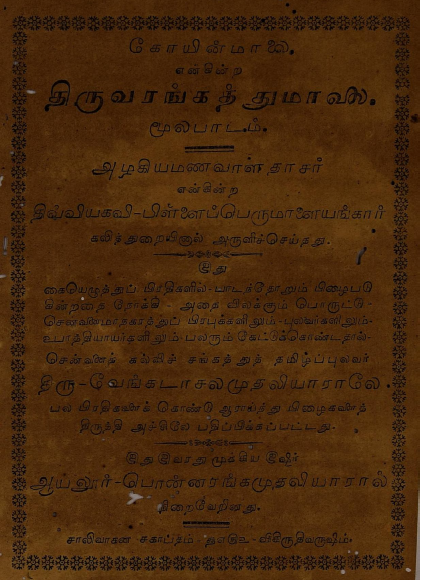 கோயின்மாலை.
என்கின்ற
திருவரங்கத்துமாலை.
மூலபாடம்.
அழகியமணவாள தாசர்
என்கின்ற
திவ்வியகவி-பிள்ளைப்பெருமாளையங்கார்
கலித்துறையினால் அருளிச்செய்தது.
இது
கையெழுத்துப் பிரதிகளில்-பாடந்தோறும் பிழைபடு
கின்றதை நோக்கி-அதை விலக்கும் பொருட்டு-
சென்னைமாநகரத்துப் பிரபுக்களிலும்-புலவர்களிலும்-
உபாத்தியாயர்களிலும்-பலரும் கேட்டுக்கொண்டதால்-
சென்னைக் கல்விச் சங்கத்துத் தமிழ்ப்புலவர்
திரு-வேங்கடாசலமுதலியாராலே.
பல பிரதிகளைக் கொண்டு ஆராய்ந்து பிழைகளைத்
திருத்தி அச்சிலே பதிப்பிக்கப்பட்டது.
இது இவரது முக்கிய
ஆய்னூர்-பொன்னரங்கமுதலியாரால்
நிறைவேறினது.
சாலிவாகன சகாப்தம்